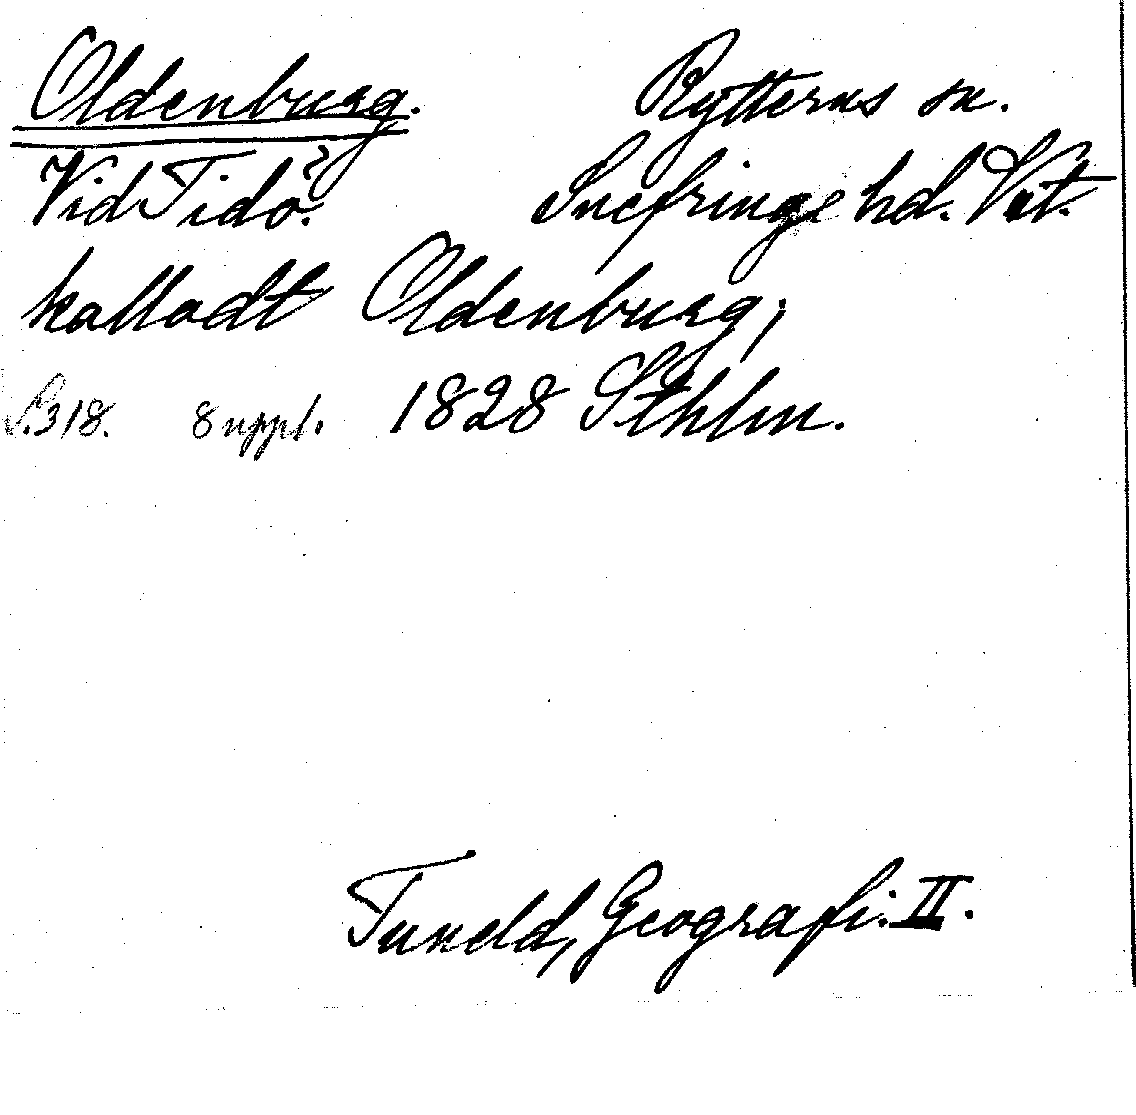 Oldenburg. Rytterns sn.
Vid Tidö? Snefringe hd. Vst.
kalladt Oldenburg,
S. 318. 8 uppl. 1828 Sthlm.
Tuneld, Geografi. II.